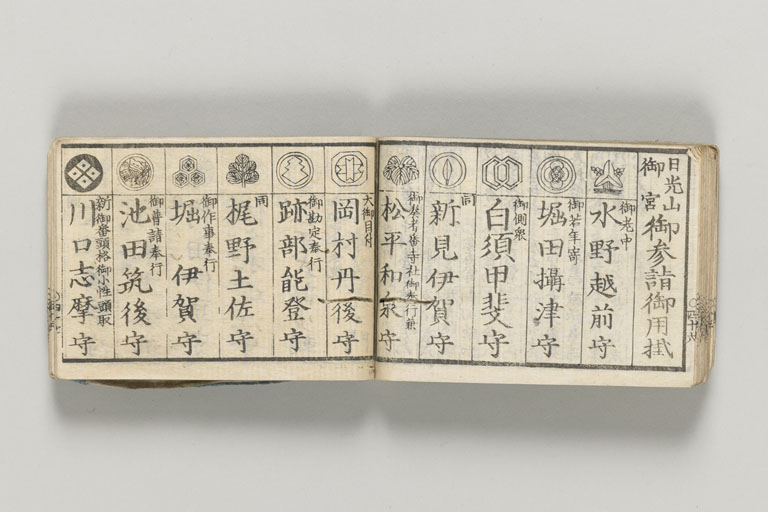 日光山
御宮御参詣御用掛
御老中
水野越前守
御若年寄
堀田攝津守
御側衆
白須甲斐守
同
新見伊賀守
御奏者番寺社御奉行兼
松平和泉守
大御目付
岡村丹後守
御勘定奉行
跡部能登守
同
梶野土佐守
御作事奉行
堀伊賀守
御普請奉行
池田筑後守
新御番頭格御小性頭取
川口志摩守